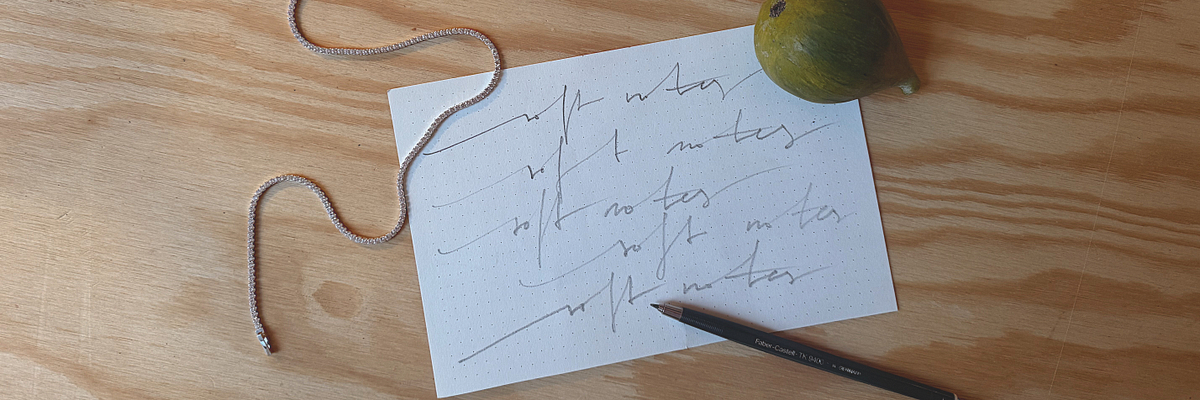 soft notes
soft notes
soft notes
soft notes
soft notes
Faber-Castell TK 9400
GERMANY